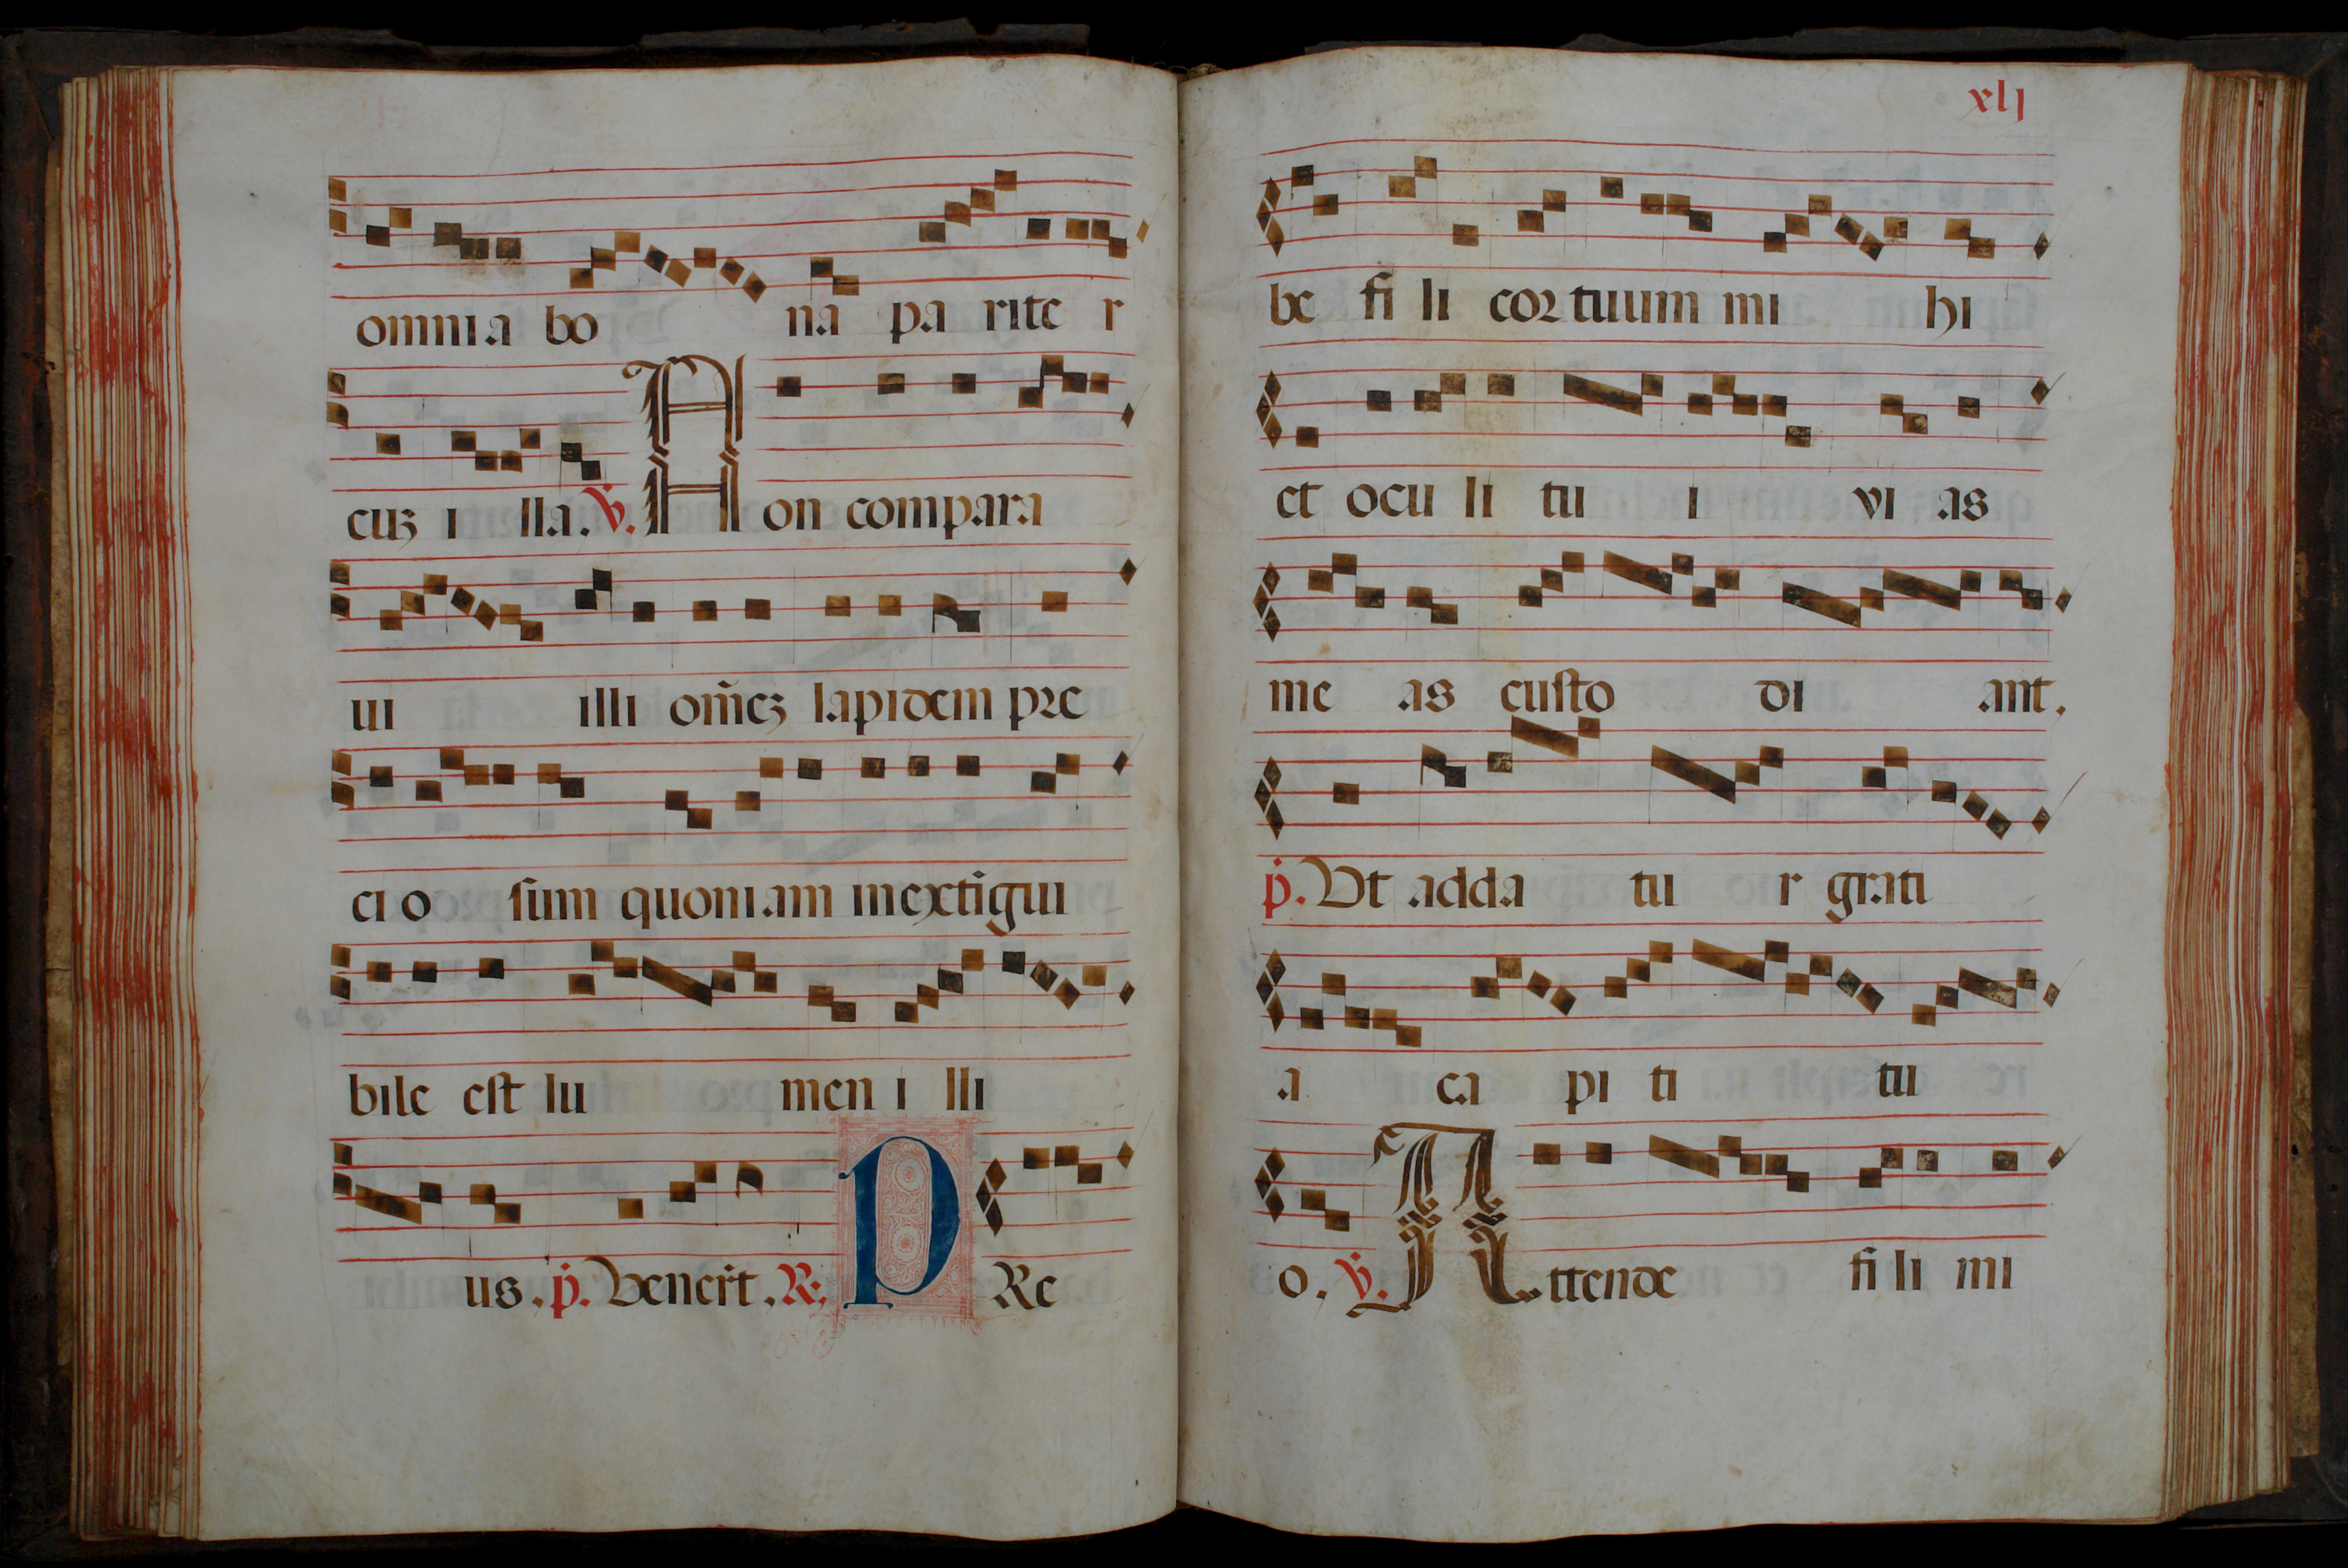 omnia bo na pa rite r
cuȝ i lla. ℣. Non compara
ui illi om̃eȝ lapidem pre
cio sum quoniam inextigui
bile est lu men i lli
us. p̱. Venert̃. ℟. PRe
xlj
be fi li cor tuum mi hi
et ocu li tu i vi as
me as custo di ant.
p̱. Ut adda tu r grati
a ca pi ti tu
o. ℣. Attende fi li mi